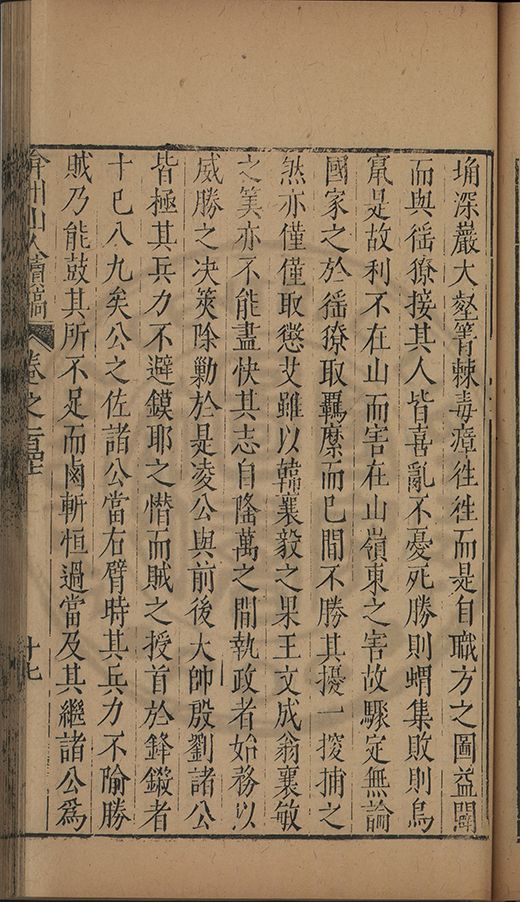 埆深巖大壑箐棘毒瘴徃徃而是自職方之圖益闢
而與徭獠接其人皆喜亂不憂死勝則蝟集敗則鳥
竄是故利不在山而害在山嶺東之害故驟定無論
國家之於徭獠取羈縻而已間不勝其擾一搜捕之
煞亦僅僅取懲艾雖以韓襄毅之果王文成翁襄敏
之筭亦不能盡快其志自隆萬之間執政者始務以
威勝之决筴除勦於是凌公與前後大帥殷劉諸公
皆極其兵力不避鏌耶之憯而賊之授首於鋒鍛者
十已八九矣公之佐諸公當右臂時其兵力不隃勝
賊乃能鼓其所不足而鹵斬恒過當及其繼諸公爲
弇州山人續稿 卷之一百 十七